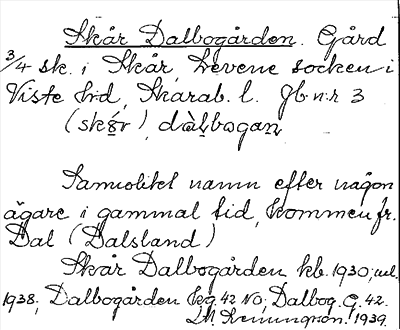 Skår Dalbogården. Gård
3/4 sk. i Skår, Levene socken i
Viste hrd, Skarab. l. Jb. n:r 3
(skår), dàlbogan
Sannolikt namn efter någon
ägare i gammal tid, kommen fr.
Dal (Dalsland)
Skår Dalbogården kb. 1930; ml.
1938, Dalbogården kg. 42 NO; Dalbog. G. 42.
1939.